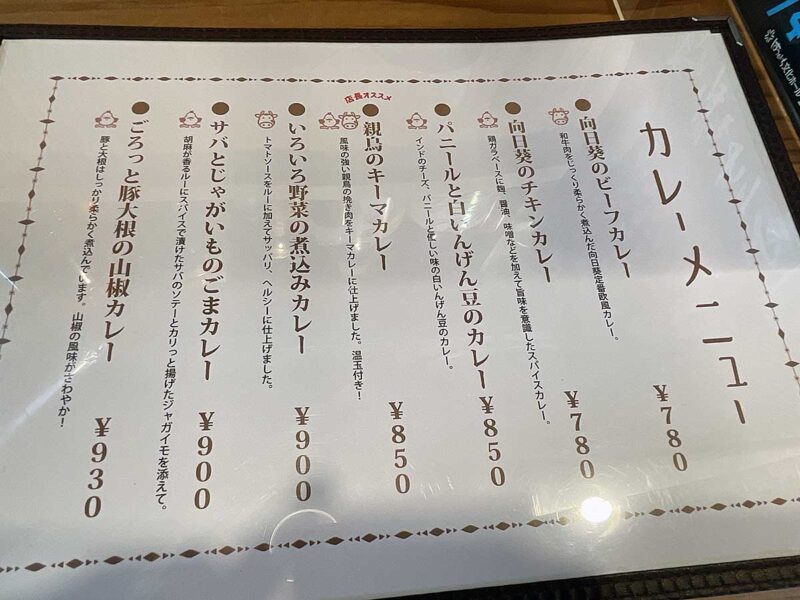 カレーメニュー
向日葵のビーフカレー
和牛肉をじっくり柔らかく煮込んだ向日葵定番欧風カレー。
￥780
向日葵のチキンカレー
鶏ガラベースに麹、醤油、味噌などを加えて旨味を意識したスパイスカレー。
￥780
パニールと白いんげん豆のカレー
インドのチーズ、パニールと優しい味の白いんげん豆のカレー。
￥850
店長オススメ
親鳥のキーマカレー
風味の強い親鳥の挽き肉をキーマカレーに仕上げました。温玉付き！
￥850
いろいろ野菜の煮込みカレー
トマトソースをルーに加えてサッパリ、ヘルシーに仕上げました。
￥900
サバとじゃがいものごまカレー
胡麻が香るルーにスパイスで漬けたサバのソテーとカリっと揚げたジャガイモを添えて。
￥900
ごろっと豚大根の山椒カレー
豚と大根はしっかり柔らかく煮込んでいます。山椒の風味がさわやか！
￥930